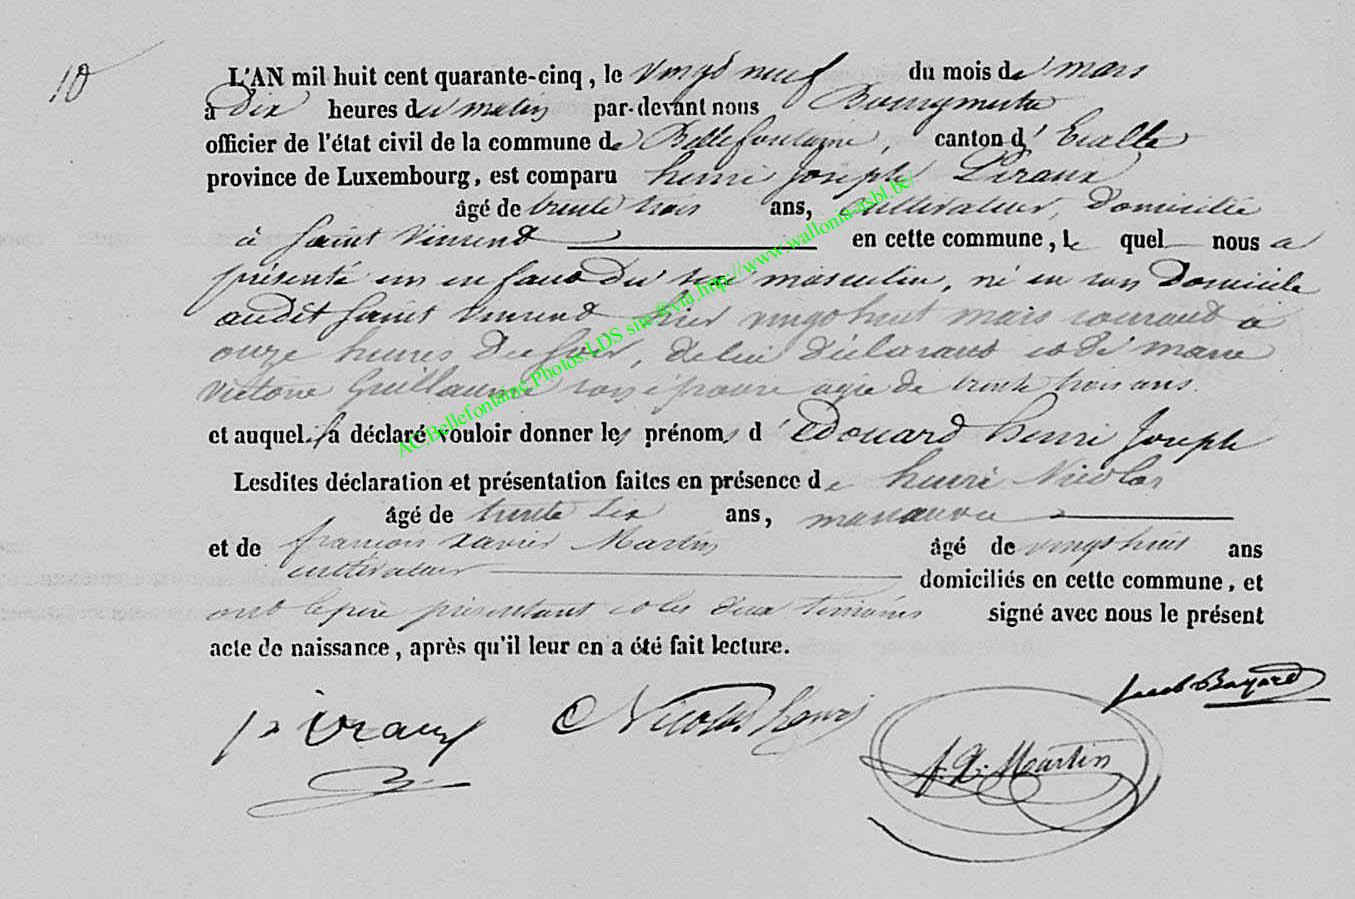 10
L'AN mil huit cent quarante-cinq, le vingt neuf du mois de mars
à dix heures du matin par-devant nous Bourgmestre
officier de l'état civil de la commune de Bellefontaine, canton d'Etalle
province de Luxembourg, est comparu henri Joseph Piraux
âgé de trente trois ans, cultivateur, domicilié
à Saint Vincent en cette commune, lequel nous a
présenté un enfant du sexe masculin, né en son domicile
audit Saint Vincent hier vingt huit mars courant à
onze heures du soir, de lui déclarant et de marie
victoire Guillaume son épouse agée de trente trois ans.
et auquel il a déclaré vouloir donner les prénoms d'édouard henri Joseph
Lesdites déclaration et présentation faites en présence de henri Nicolas
âgé de trente six ans, manœuvre
et de francois Xavier Martin âgé de vingt huit ans
cultivateur domiciliés en cette commune, et
ont le père présentant et les deux témoins signé avec nous le présent
acte de naissance, après qu'il leur en a été fait lecture.
AC Bellefontaine Photos LDS site @via http://www.wallonia-asbl.be/
Jacob Bayard
piraux
Nicolas henri
f. X. Martin